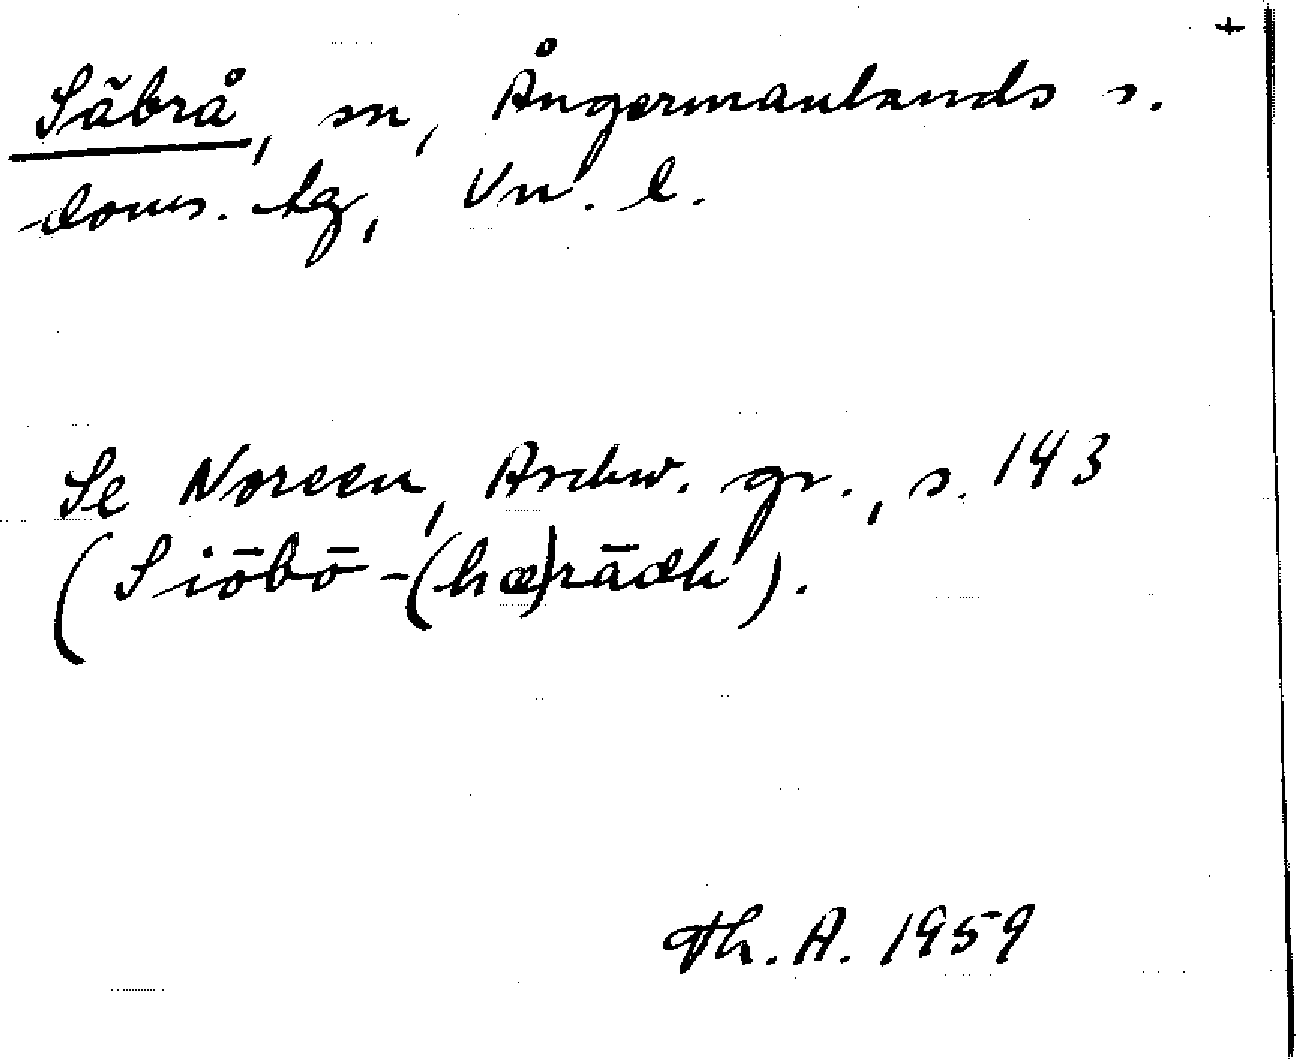 +
Säbrå, sn, Ångermanlands s.
doms. tg, Vn. l.
Se Noreen, Aschw. gr., s. 143
(Siōbō-(hæ)rādh).
Th. A. 1959